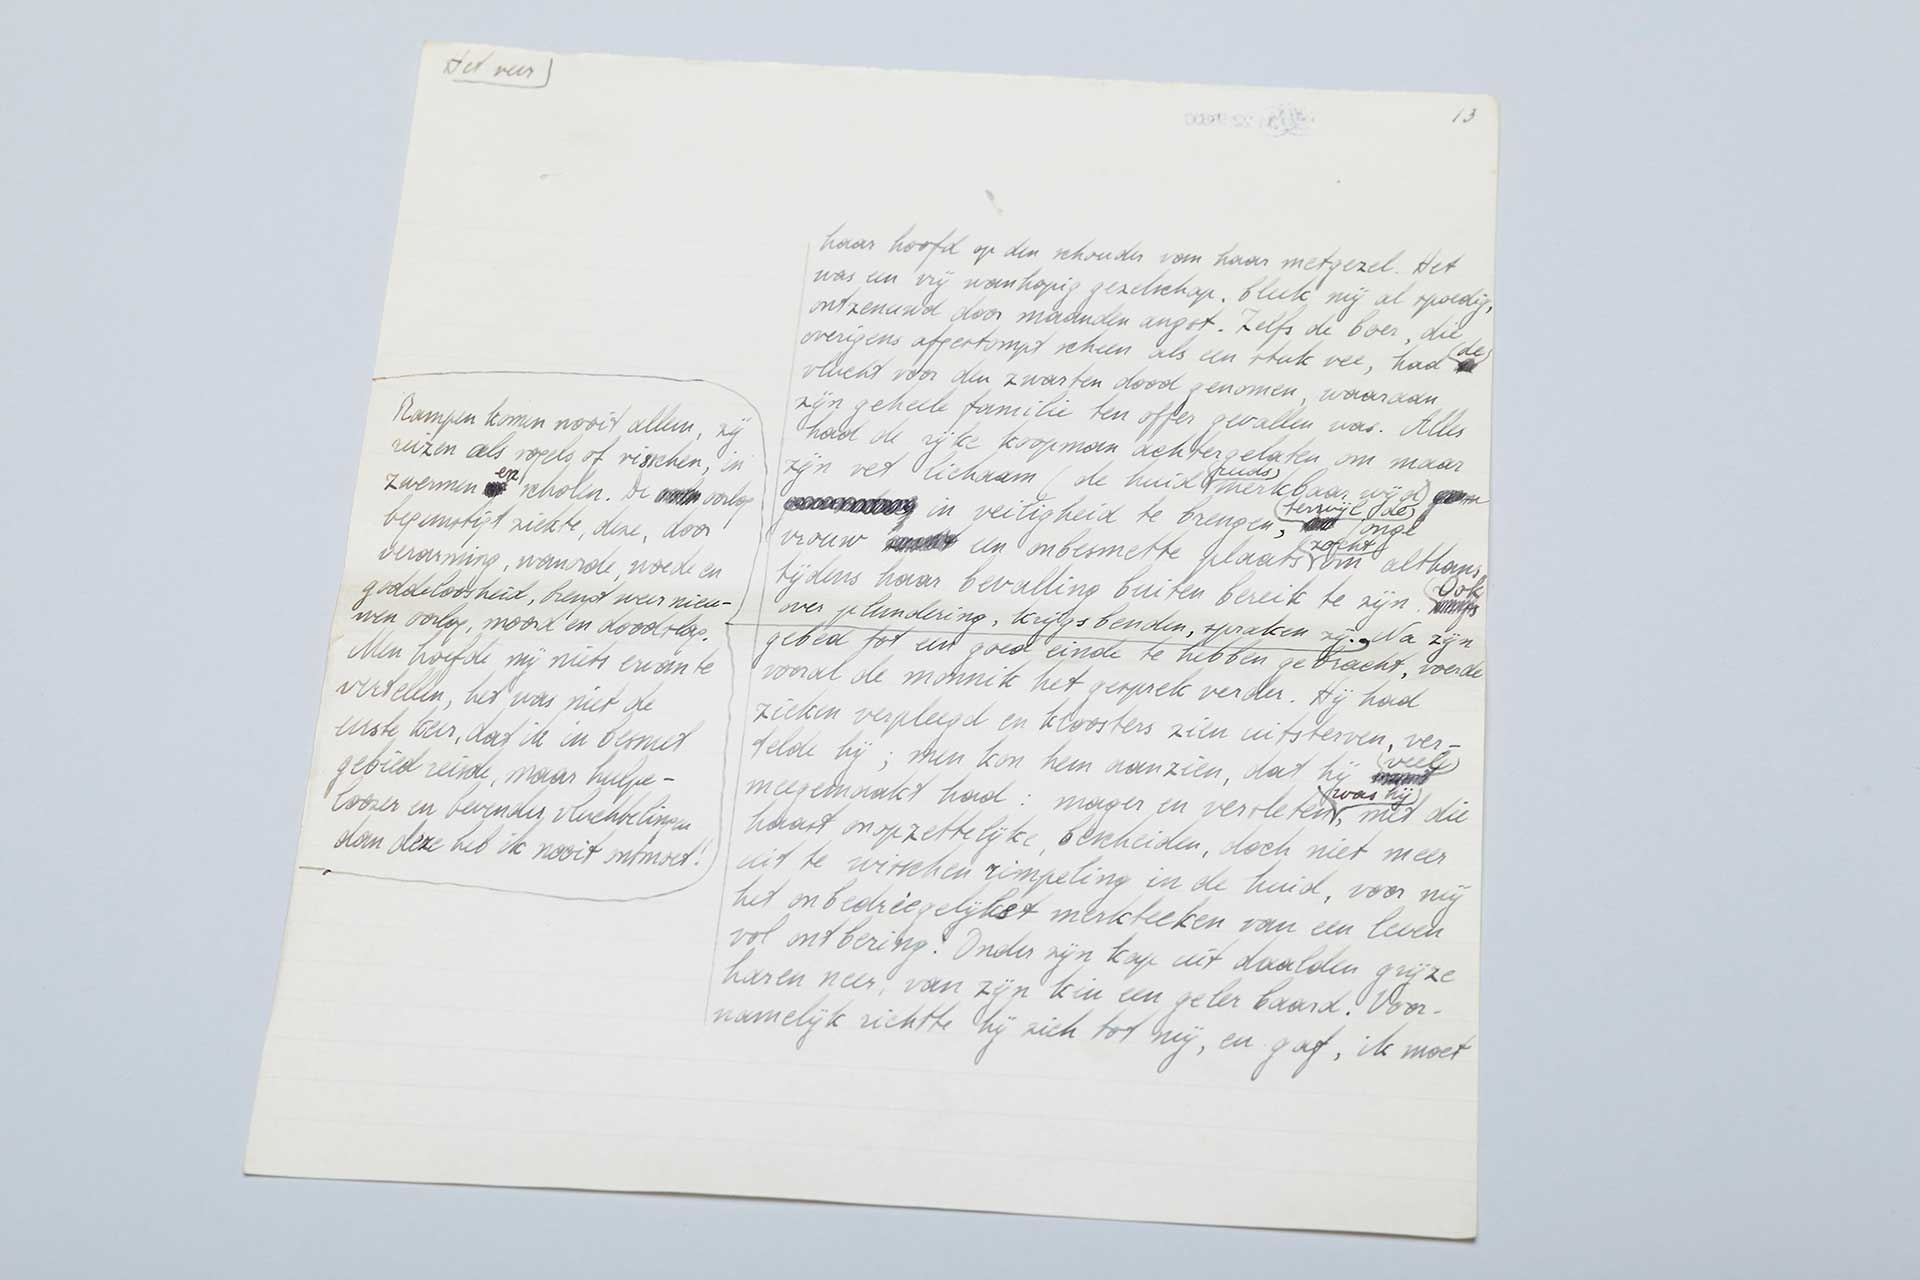 Het veer
13
haar hoofd op den schouder van haar metgezel. Het
was een vrij wanhopig gezelschap, bleek mij al spoedig,
ontzenuwd door maanden angst. Zelfs de boer, die
overigens afgestompt scheen als een stuk vee, had de
vlucht voor den zwarten dood genomen, waaraan
zijn geheele familie ten offer gevallen was. Alles
had de rijke koopman achtergelaten om maar
zijn vet lichaam (de huid reeds merkbaar wijd)
in veiligheid te brengen, terwijl de jonge
vrouw een onbesmette plaats zocht om althans
tijdens haar bevalling buiten bereik te zijn. Ook
over plundering, krijgsbenden, spraken zij. Na zijn
gebed tot een goed einde te hebben gebracht, voerde
vooral de monnik het gesprek verder. Hij had
zieken verpleegd en kloosters zien uitsterven, ver-
telde hij; men kon hem aanzien, dat hij veel
meegemaakt had: mager en versleten was hij, met die
haast onopzettelijke, bescheiden, doch niet meer
uit te wisschen rimpeling in de huid, voor mij
het onbedriegelijkst merkteeken van een leven
vol ontbering. Onder zijn kap uit daalden grijze
haren neer, van zijn kin een geler baard. Voor-
namelijk richtte hij zich tot mij, en gaf, ik moet
Rampen komen nooit alleen, zij
reizen als vogels of visschen, in
zwermen en scholen. De oorlog
begunstigt ziekte, deze, door
verarming, waarde, woede en
goddeloosheid, brengt weer nieu-
wen oorlog, moord en doodslag.
Men hoefde mij niets ervan te
vertellen, het was niet de
eerste keer, dat ik in besmet
gebied reisde, maar hulpe-
loozer en bevender vluchtelingen
dan deze heb ik nooit ontmoet!